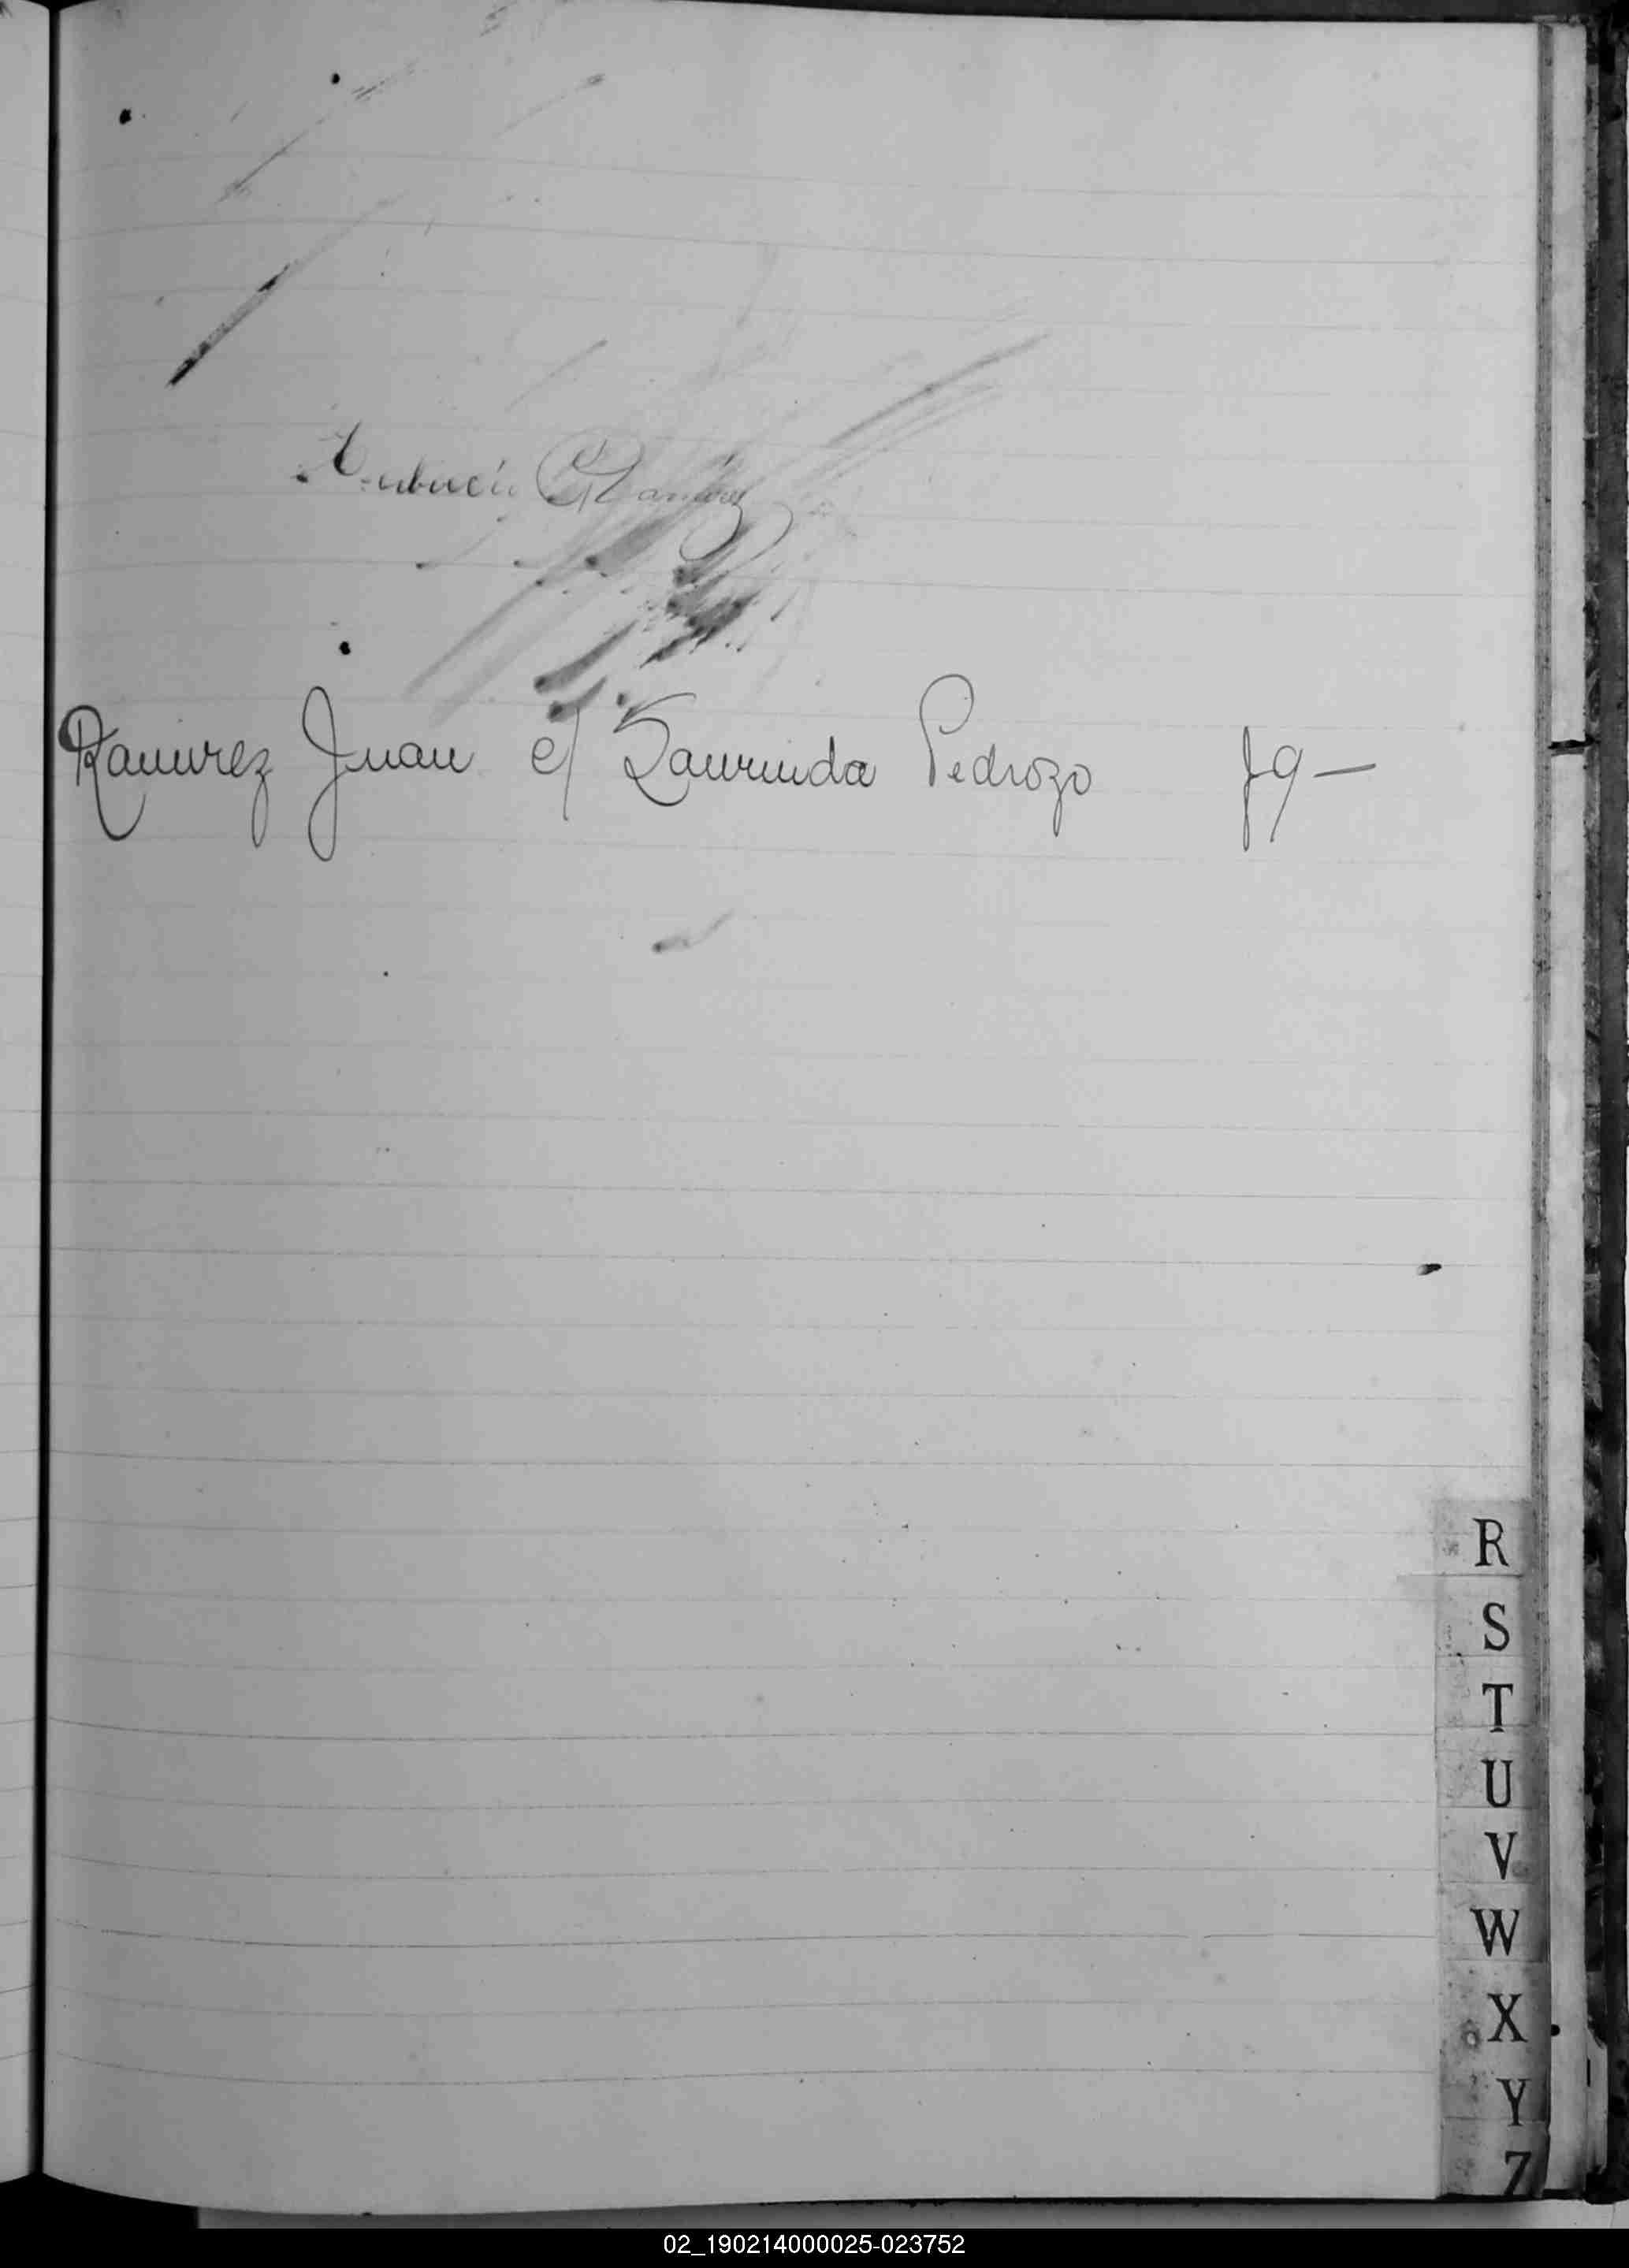 Ramirez Juan c/ Laurinda Pedrozo f 9 —
R
S
T
U
V
W
X
Y
Z
02_190214000025-023752